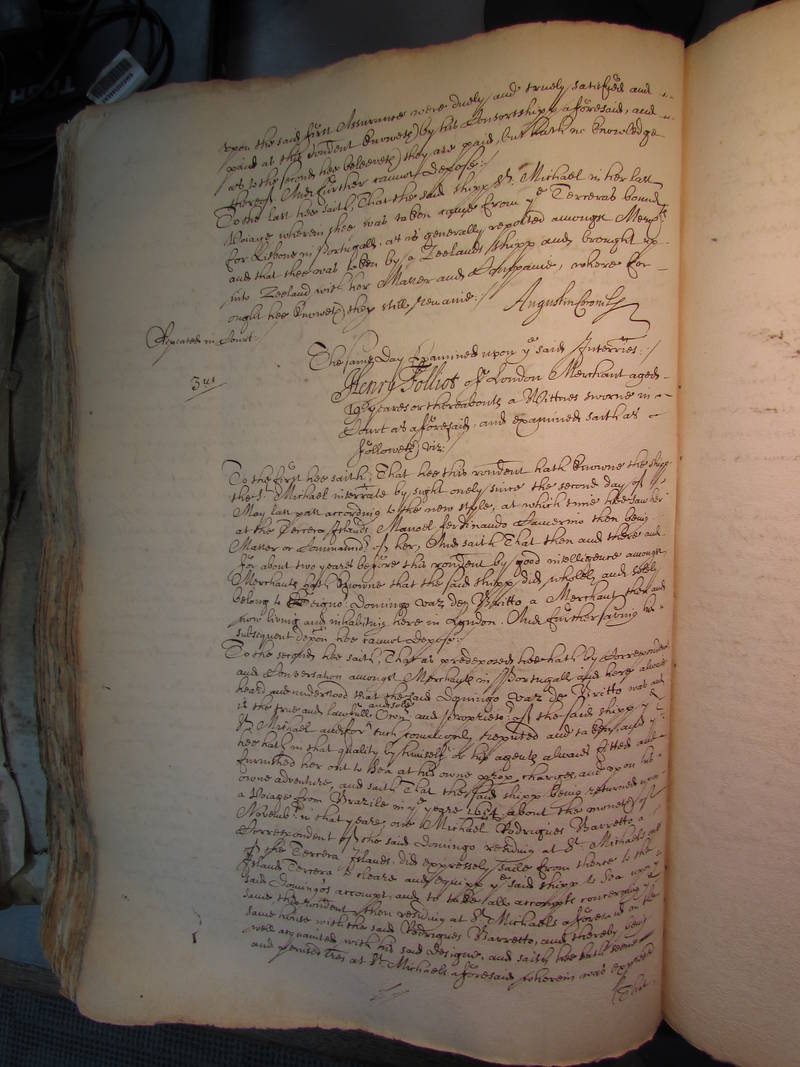 upon the said first Assurance were duely and truely satisfyed and
paid as this rondent knoweth by his Consortshipp aforesaid, and
as to the second hee beleeveth they are paid, but hath no knowledge
thereof. And further cannot depose:/
To the last hee saith, That the said shipp St. Michael in her last
Voiage wherein shee was taken came from ye Terceras bound
for Lisbone in Portugall, as is generally reported amongst Merchts
and that shee was taken by a Zeeland shipp and brought up
into Zeeland with her Master and Companie, where for
ought hee knoweth they still remaine:/
Augustin Coronel
Repeated in Court.
The same Day Examined upon ye said Interries:/
3us
Henry Folliot of London Merchant aged
19 yeares or thereabouts a Wittnes sworne in
Court as aforesaid, and examined saith as
followeth viz:
To the first hee saith, That hee this rondent hath knowne the shipp
the St. Michael interrate by sight onely since the second day of
May last past according to the new style, at which time hee saw her
at the Tercera Islands Manoel ferdinando then being
Master or Commandr of her, And saith That then and there and
for about two yeares before this rondent by good intelligence amongst
Merchants hath knowne that the said shipp did wholely and solely
belong to Seignor Domingo vaz dey Britto a Merchant then and
now living and inhabiting here in London. And further saving his
subsequent depon hee cannot depose:/
To the second hee saith, That as predeposed hee hath by Correspondence
and Conversation amongst Merchants in Portugall and here alwaies
heard and understood that the said Domingo vaz de Britto was and
is the true and lawfull and sole Owner and proprietor of the said shipp ye
St. Michael and for such commonly reputed and taken, and yt
hee hath in that quality by himself or his agents alwaies fitted and
furnished her out to Sea at his owne charges, and upon his
owne adventure, and saith That the said shipp being returned upon
a Voiage from Brazile in ye yeare about the moneth of
November in that yeare, one Michael Rodrigues Barretto a
Correspondent of the said Domingo residing at St. Michaels one
of the Tercera Islands did expressely saile from thence to the
Island Tercera to cleare and equipp ye said shipp to Sea upon
said Domingos accompt, and to take all accompts concerning ye
same this rondent then residing at St. Michaels aforesaid in the
same house with the said Rodrigues Barretto, and thereby being
well acquainted with his said designe, and saith hee hath seene
and perused lres at St. Michaels aforesaid wherein was expressed
That